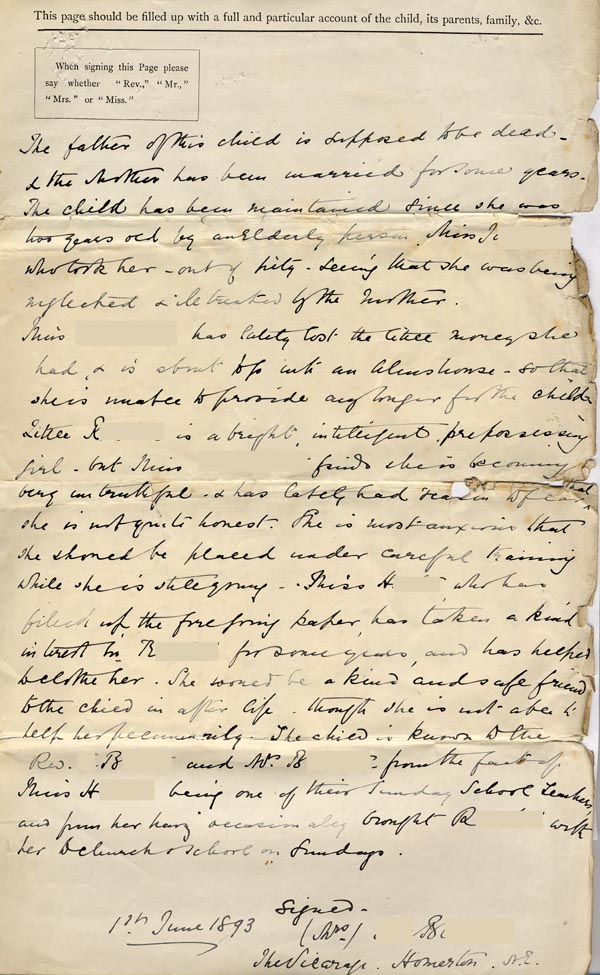 This page should be filled up with a full and particular account of the child, its parents, family, &c.
When signing this Page please
say whether "Rev.," "Mr.,"
"Mrs." or "Miss."
The father of this child is supposed to be dead -
& the Mother has been married for some years.
The child has been maintained since she was
two years old by an Elderly person, Miss
who took her - out of pity - seeing that she was being
neglected & illtreated by the Mother.
Miss has lately lost the little money she
had, & is about to go into an Almshouse - so that
she is unable to provide any longer for the child.
Little R is a bright, intelligent, prepossessing
girl - but Miss finds she is becoming
very untruthful - & has lately had reason to fear that
she is not quite honest. She is most anxious that
she should be placed under careful training
while she is still young - . Miss H who has
filled up the foregoing paper, has taken a kind
interest in R for some years, and has helped
to clothe her. She would be a kind and safe friend
to the child in after life. though she is not able to
help her pecuniarily. The child is known to the
Rev. B and Mrs. B from the fact of
Miss H being one of their Sunday School Teachers,
and from her having occasionally brought R with
her to church & school on Sundays.
Signed -
1st June 1893 (Mrs) B
The Vicarage. Homerton. N.E.